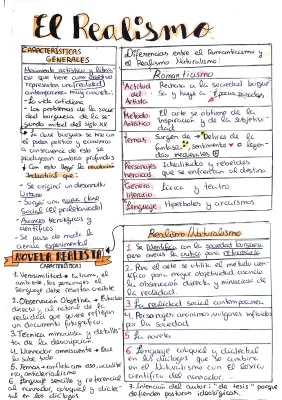 El Realismo
CARACTERÍSTICAS
GENERALES
Movimiento artístico y literario
que tiene como
representar una realidad
contemporánea muy concreta:
- La vida cotidiana
- Los problemas de la socie-
dad burguesa de la se-
gunda mitad del siglo XIX
La clase burguesa se hace con
el poder político y económico
a consecuencia de esto se
producieron cambios profundos
Con esto llegó la revolución
Industrial que:
- Se originó un desarrollo
Urbano
- Surgió una nueva clase
Social (el proletariado)
- Avances tecnológicos y
científicos
- Se puso de moda la
ciencia experimental
NOVELA REALISTA
CARACTERÍSTICAS
1. Verosimilitud → La trama, el
ambiente, los personajes y el
lenguaje deben resultar creíbles
2. Observación Objetiva → Estudio
directo y al natural de la
realidad que quiere reflejar
un documento fotográfico.
3. Técnica minuciosa y detallis-
ta de la descripción.
4. Narrador omnisciente → Que
lo sabe todo
5. Temas → conflicto amoroso,
6. Lenguaje sencillo y referencial
al narrador, coloquial y dialec-
tal en los diálogos.
Diferencias entre el Romanticismo y
el Realismo Naturalismo:
Romanticismo
Actitud
del
Artista
Rechaza a la sociedad burgue-
sa y huye a épocas pasadas
Método
Artístico
El arte se obtiene de la
inspiración y de la subjetivi-
dad
Temas
Surgen de → Delirios de la
fantasía, sentimientos o leyen-
das
Personajes
heroicos
Idealizados y rebeldes
que se enfrentan al destino.
Género
literario
Lírica y teatro
Lenguaje
Hipérboles y arcaísmos.
Realismo/Naturalismo
1. Se identifica con la sociedad burguesa
pero ejerce la crítica para reformarla.
2. Para el arte se utiliza el método cien-
tífico para mayor objetividad usando
la observación directa y minuciosa de
la realidad.
3. La realidad social contemporánea.
4. Personajes anónimos vulgares influidos
por la sociedad
5. La novela
6. Lenguaje coloquial y dialectal
en los diálogos que se combina
en el Naturalismo con el léxico
científico del narrador.
7. Intención del autor: "de tesis" porque
defienden posturas ideológicas.